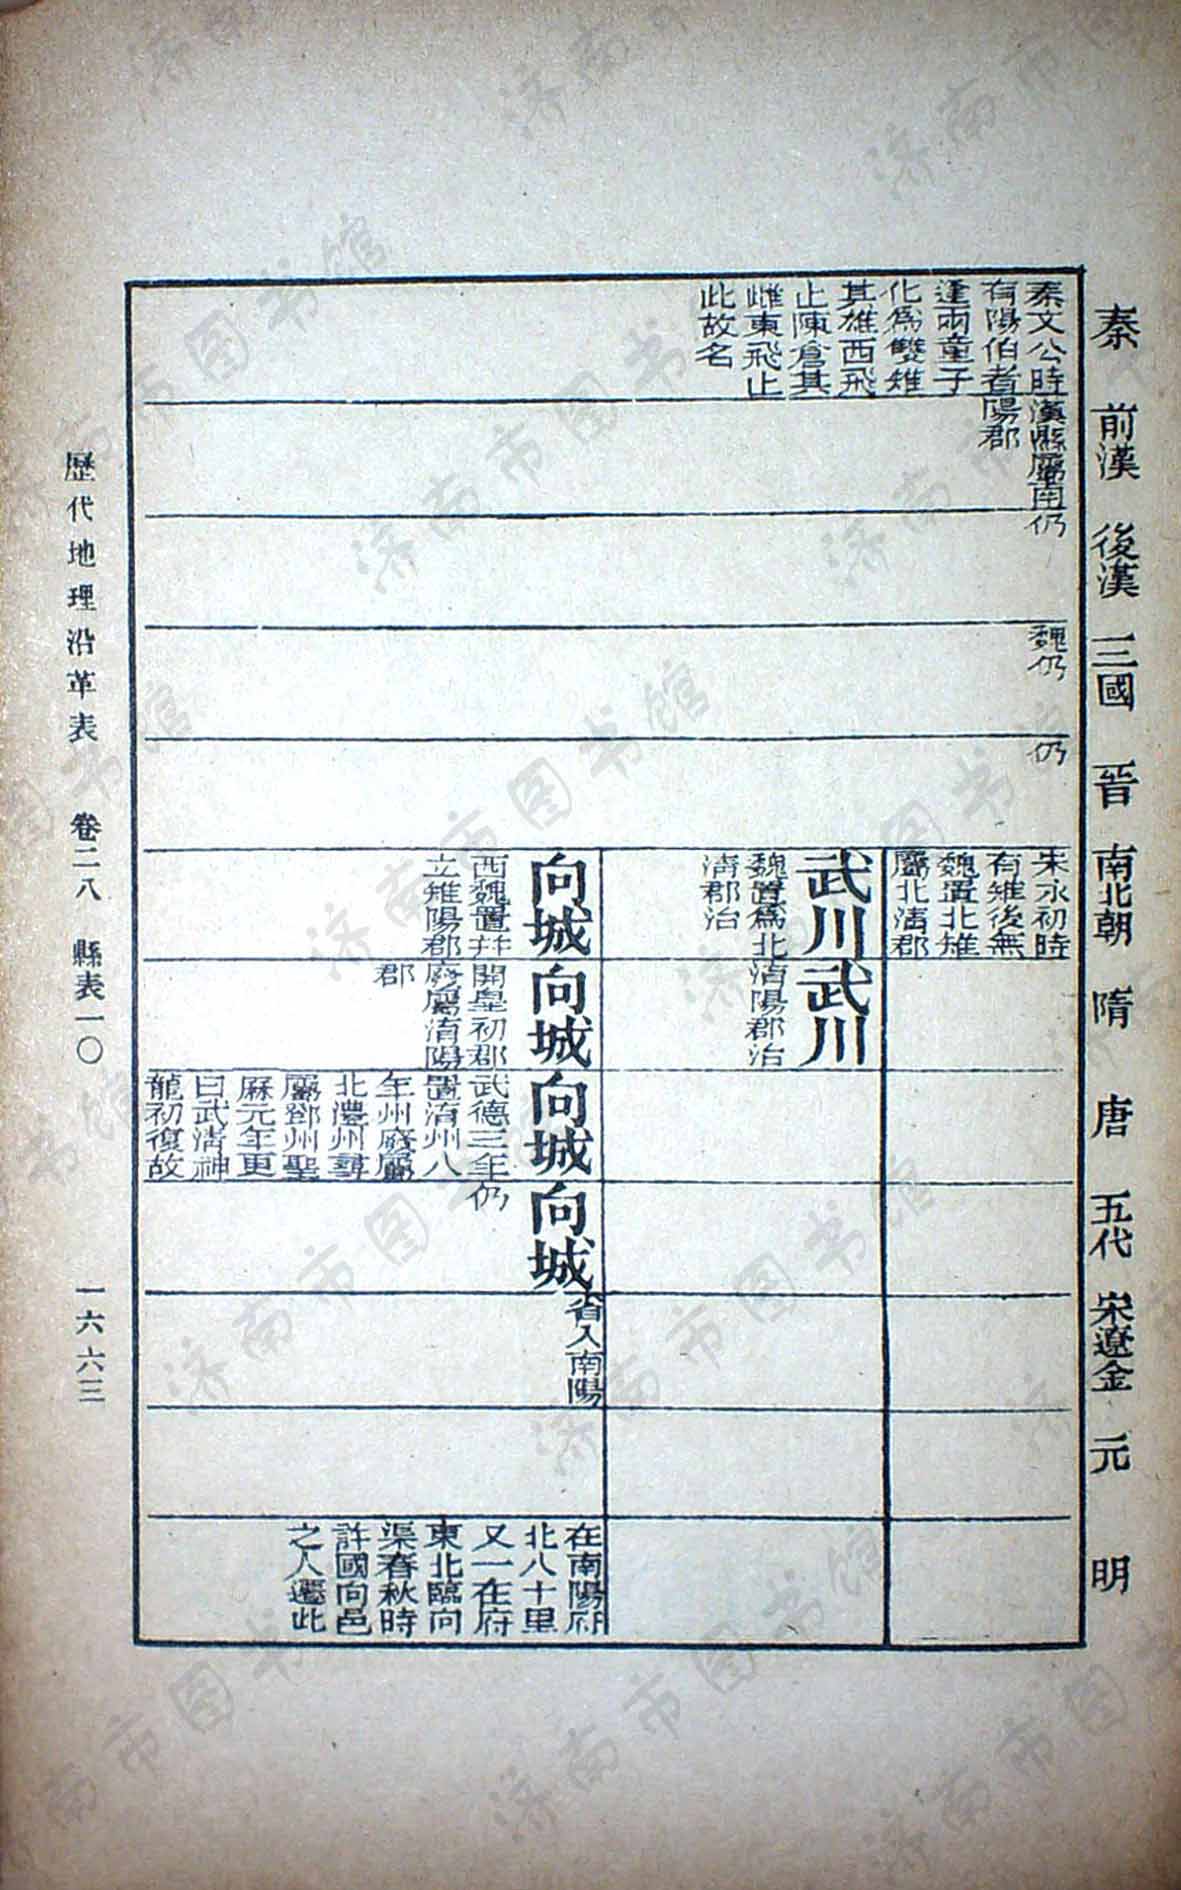 秦
前漢
後漢
三國
晉
南北朝
隋
唐
五代
宋遼金
元
明
秦文公時
有陽伯者
逢兩童子
化爲雙雉
其雄西飛
止陳倉其
雌東飛止
此故名
漢縣屬南
陽郡
仍
魏仍
仍
宋永初時
有雉後無
魏置北雉
屬北淯郡
武川
魏置爲北
淯郡治
武川
淯陽郡治
向城
西魏置幷
立雉陽郡
向城
開皇初郡
廢屬淯陽
郡
向城
武德三年
置淯州八
年州廢屬
北澧州尋
屬鄧州聖
厤元年更
曰武清神
龍初復故
向城
仍
省入南陽
在南陽府
北八十里
又一在府
東北臨向
渠春秋時
許國向邑
之人遷此
歷代地理沿革表 卷二八 縣表一〇 一六六三
济南市图书馆